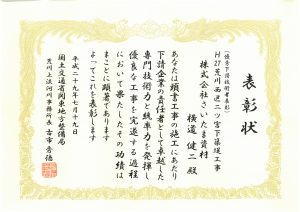 表彰状
(優秀下請技術者表彰)
H27荒川西遊馬二ツ宮下築堤工事
株式会社さいたま資材
横溝 健二 殿
あなたは頭書工事の施工にあたり
下請企業の責任者として卓越した
専門技術力と統率力を発揮し
優良な工事を完遂する過程
において果たしたその功績は
まことに顕著であります
よってこれを表彰します
平成二十九年七月十九日
国土交通省関東地方整備局
荒川上流河川事務所長 古市秀徳